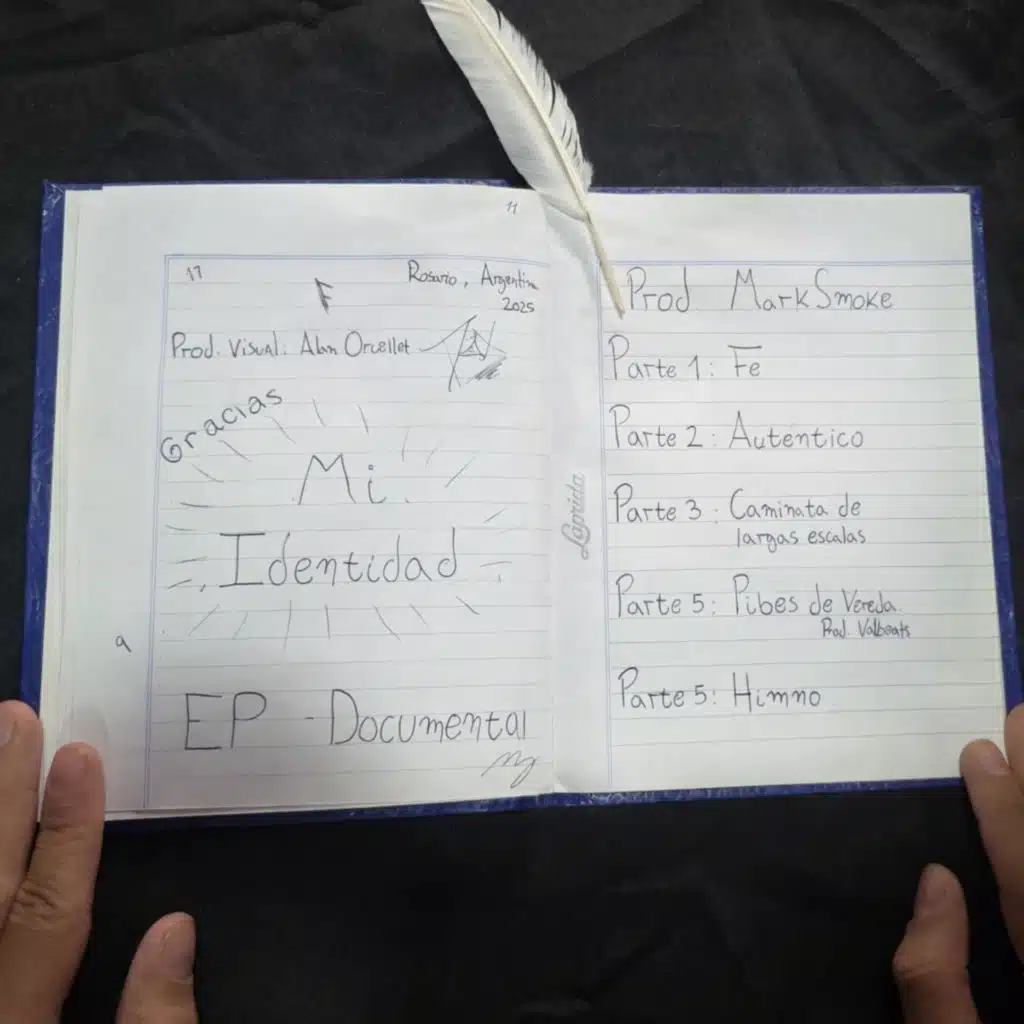 11
17
Rosario, Argentina
2025
F
Prod. Visual: Alan Orcellet
Gracias
Mi
Identidad
9
EP - Documental
Laprida
Prod MarkSmoke
Parte 1: Fe
Parte 2: Autentico
Parte 3: Caminata de
largas escalas
Parte 5: Pibes de Vereda.
Prod. Valbeats
Parte 5: Himno